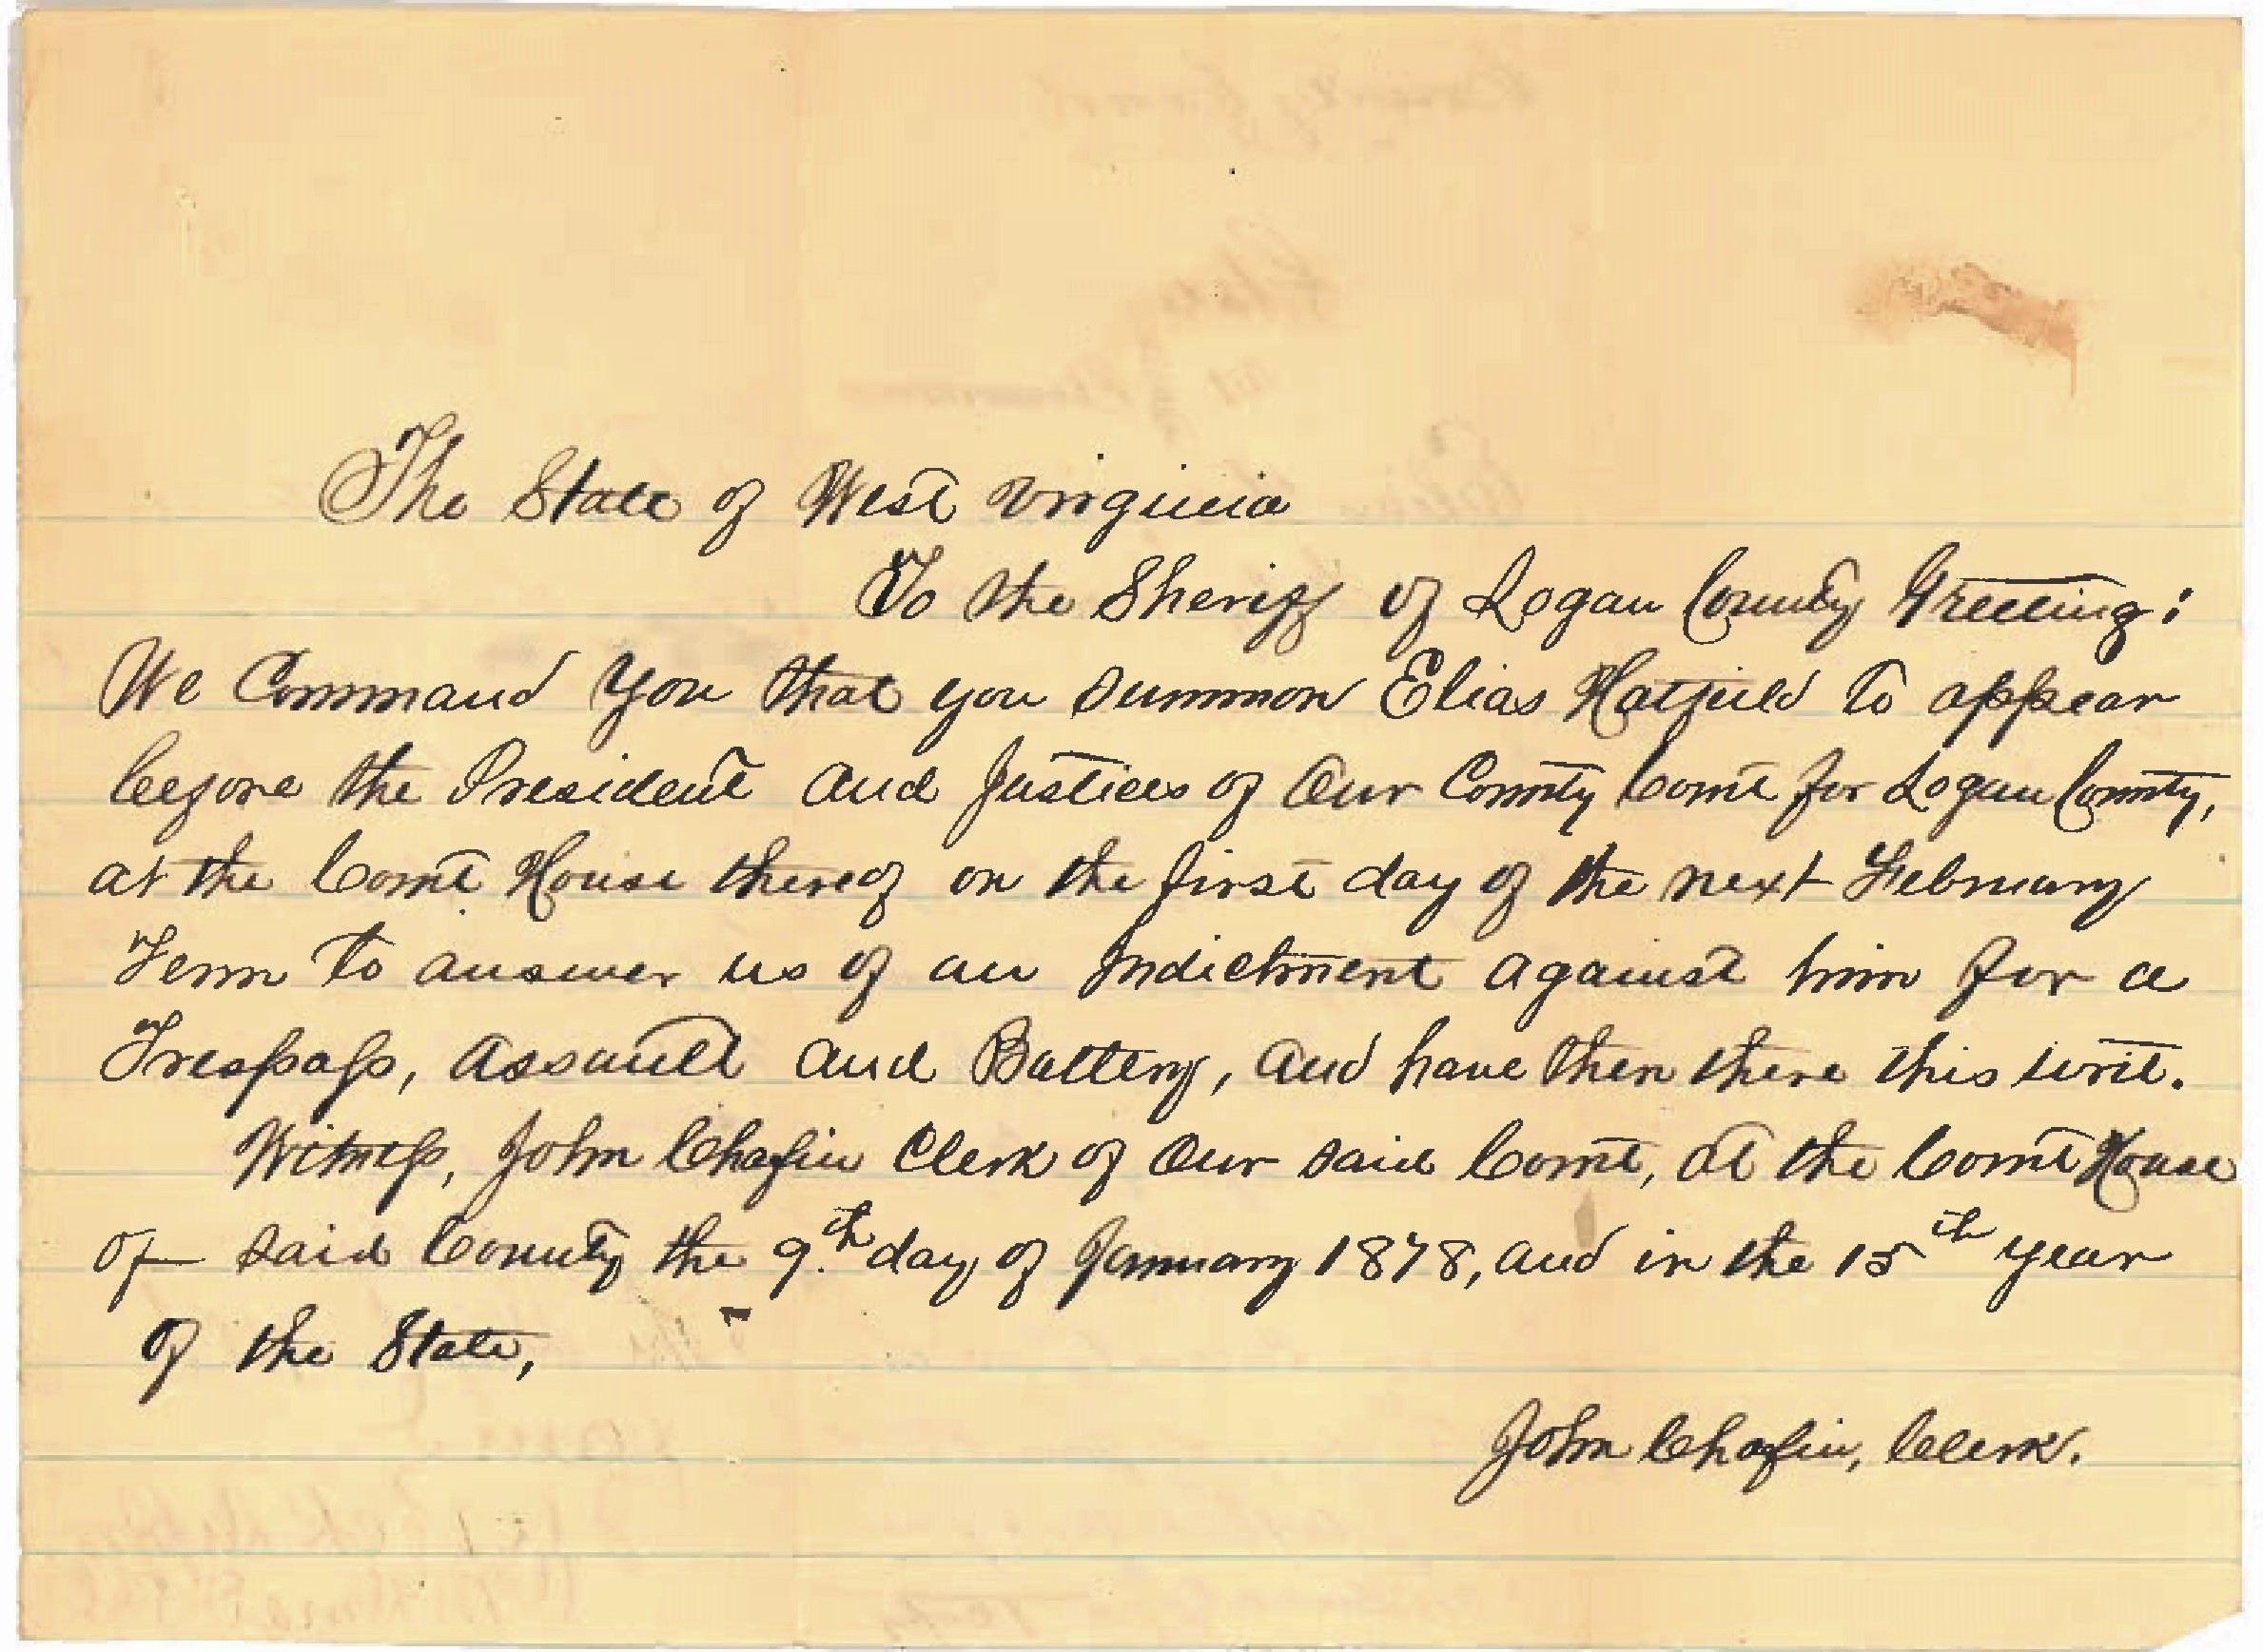 The State of West Virginia
To the Sheriff of Logan County Greeting:
We Command You that you summon Elias Hatfield to appear
before the President and Justices of Our County Court for Logan County,
at the Court House thereof on the first day of the next February
Term to answer us of an Indictment against him for a
Trespass, Assault and Battery, and have then there this writ.
Witness, John Chafin Clerk of Our said Court, at the Court House
of said County the 9th day of January 1878, and in the 15th year
of the State,
John Chafin, Clerk.